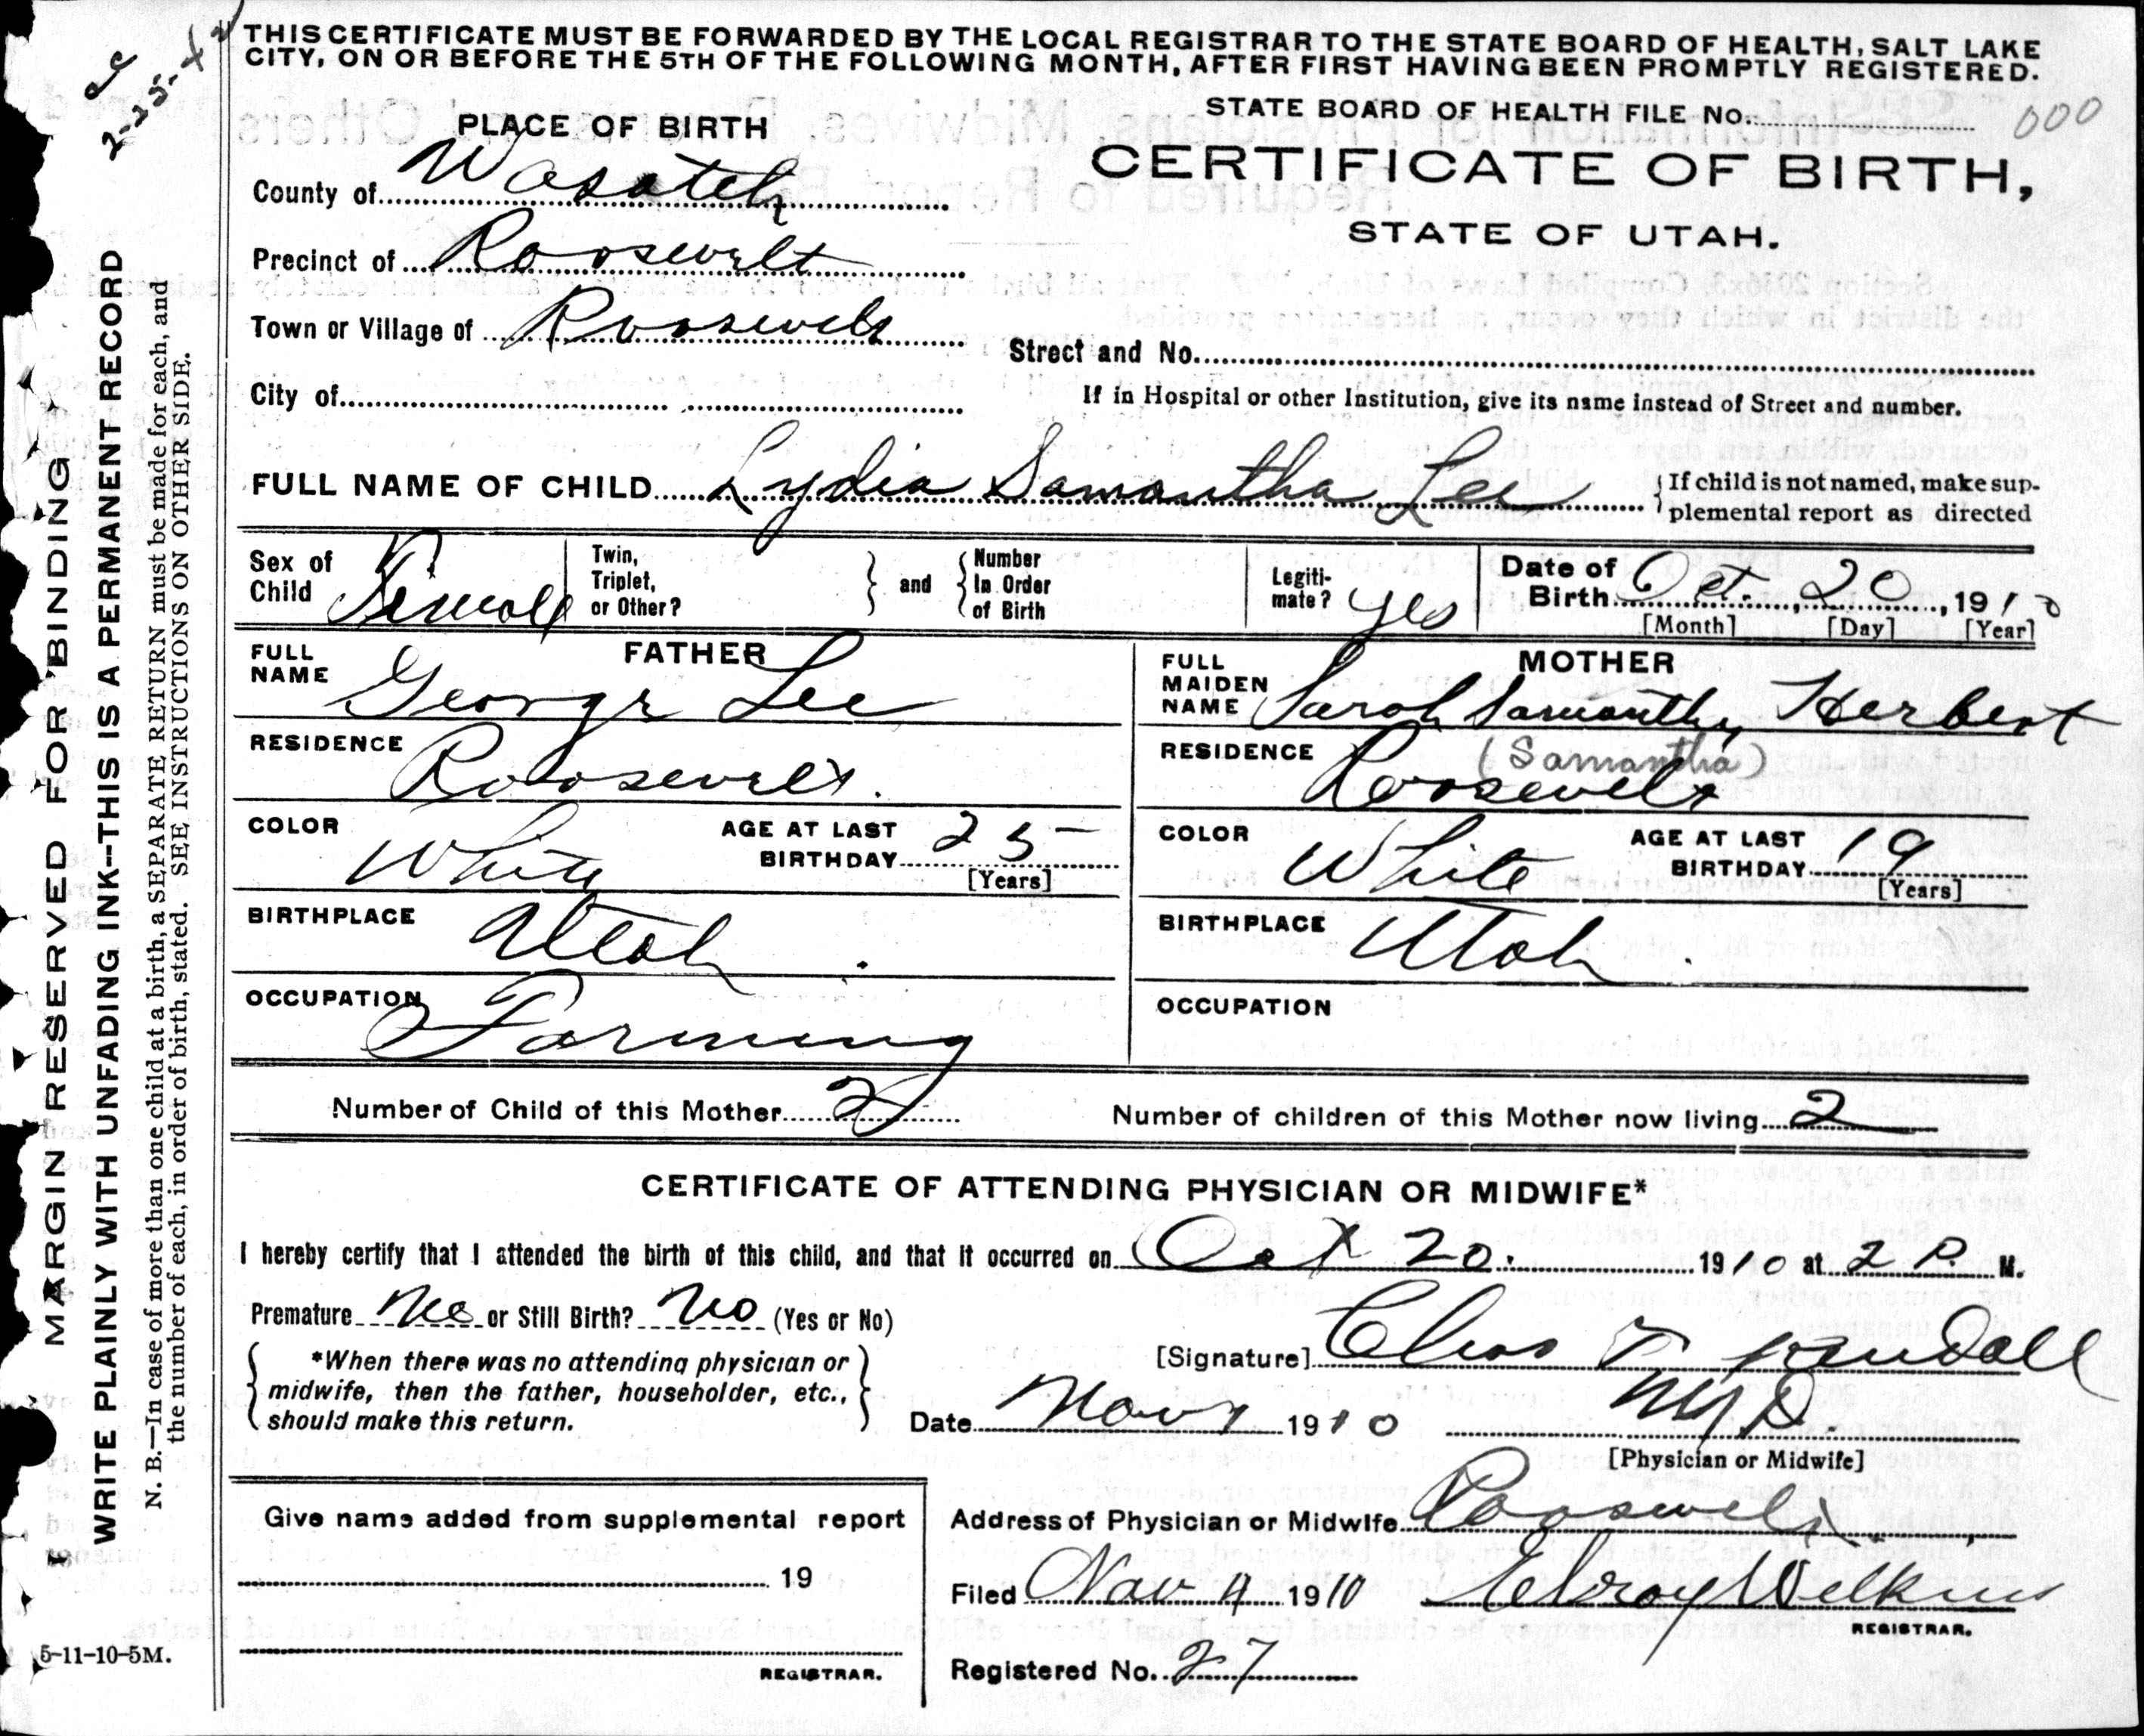 THIS CERTIFICATE MUST BE FORWARDED BY THE LOCAL REGISTRAR TO THE STATE BOARD OF HEALTH, SALT LAKE
CITY, ON OR BEFORE THE 5TH OF THE FOLLOWING MONTH, AFTER FIRST HAVING BEEN PROMPTLY REGISTERED.
2-25-42
STATE BOARD OF HEALTH FILE No. 000
PLACE OF BIRTH
CERTIFICATE OF BIRTH,
STATE OF UTAH.
County of Wasatch
Precinct of Roosevelt
Town or Village of Roosevelt
Street and No.
City of
If in Hospital or other Institution, give its name instead of Street and number.
FULL NAME OF CHILD Lydia Samantha Lee
If child is not named, make sup-
plemental report as directed
Sex of Child Female
Twin, Triplet, or Other?
and
Number In Order of Birth
Legiti-mate? yes
Date of Birth Oct. 20, 1910
[Month] [Day] [Year]
FATHER
FULL NAME George Lee
RESIDENCE Roosevelt.
COLOR White
AGE AT LAST BIRTHDAY 25
[Years]
BIRTHPLACE Utah.
OCCUPATION Farming
MOTHER
FULL MAIDEN NAME Sarah Samantha Herbert
(Samantha)
RESIDENCE Roosevelt
COLOR White
AGE AT LAST BIRTHDAY 19
[Years]
BIRTHPLACE Utah.
OCCUPATION
Number of Child of this Mother 2
Number of children of this Mother now living 2
CERTIFICATE OF ATTENDING PHYSICIAN OR MIDWIFE*
I hereby certify that I attended the birth of this child, and that it occurred on Oct 20. 1910 at 2 P. M.
Premature No or Still Birth? No (Yes or No)
*When there was no attending physician or
midwife, then the father, householder, etc.,
should make this return.
[Signature] Chas T Kendall
Date Nov 1 1910
M.D.
[Physician or Midwife]
Give name added from supplemental report
19
REGISTRAR.
Address of Physician or Midwife Roosevelt
Filed Nov 4 1910 Elroy Wilkins
REGISTRAR.
Registered No. 27
5-11-10-5M.
MARGIN RESERVED FOR BINDING
WRITE PLAINLY WITH UNFADING INK--THIS IS A PERMANENT RECORD
N. B.—In case of more than one child at a birth, a SEPARATE RETURN must be made for each, and
the number of each, in order of birth, stated. SEE INSTRUCTIONS ON OTHER SIDE.